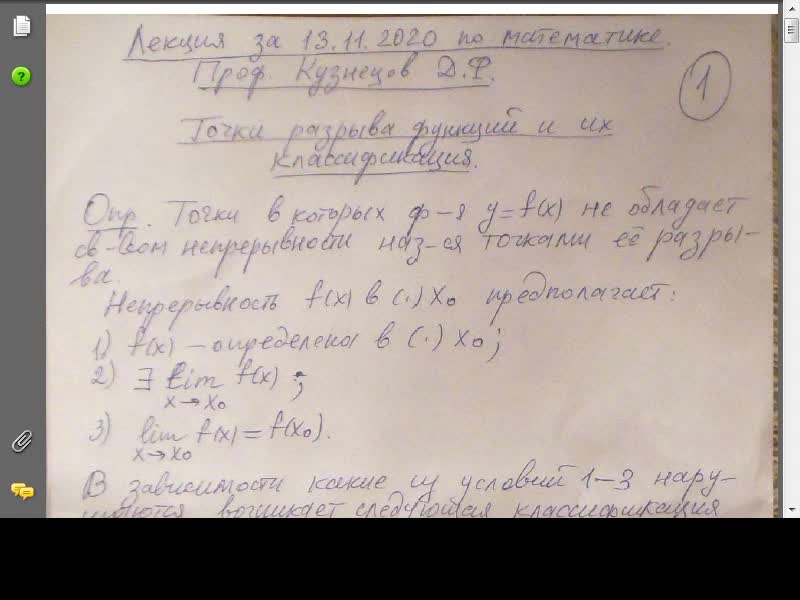 Лекция за 13.11.2020 по математике.
Проф. Кузнецов Д.Ф.
1
Точки разрыва функций и их
классификация.
Опр. Точки в которых ф-я y=f(x) не обладает
св-вом непрерывности наз-ся точками её разры-
ва.
Непрерывность f(x) в (·) x₀ предполагает:
1) f(x) – определена в (·) x₀;
2) ∃ lim f(x) ;
x→x₀
3) lim f(x) = f(x₀).
x→x₀
В зависимости какие из условий 1–3 нару-
шаются возникает следующая классификация